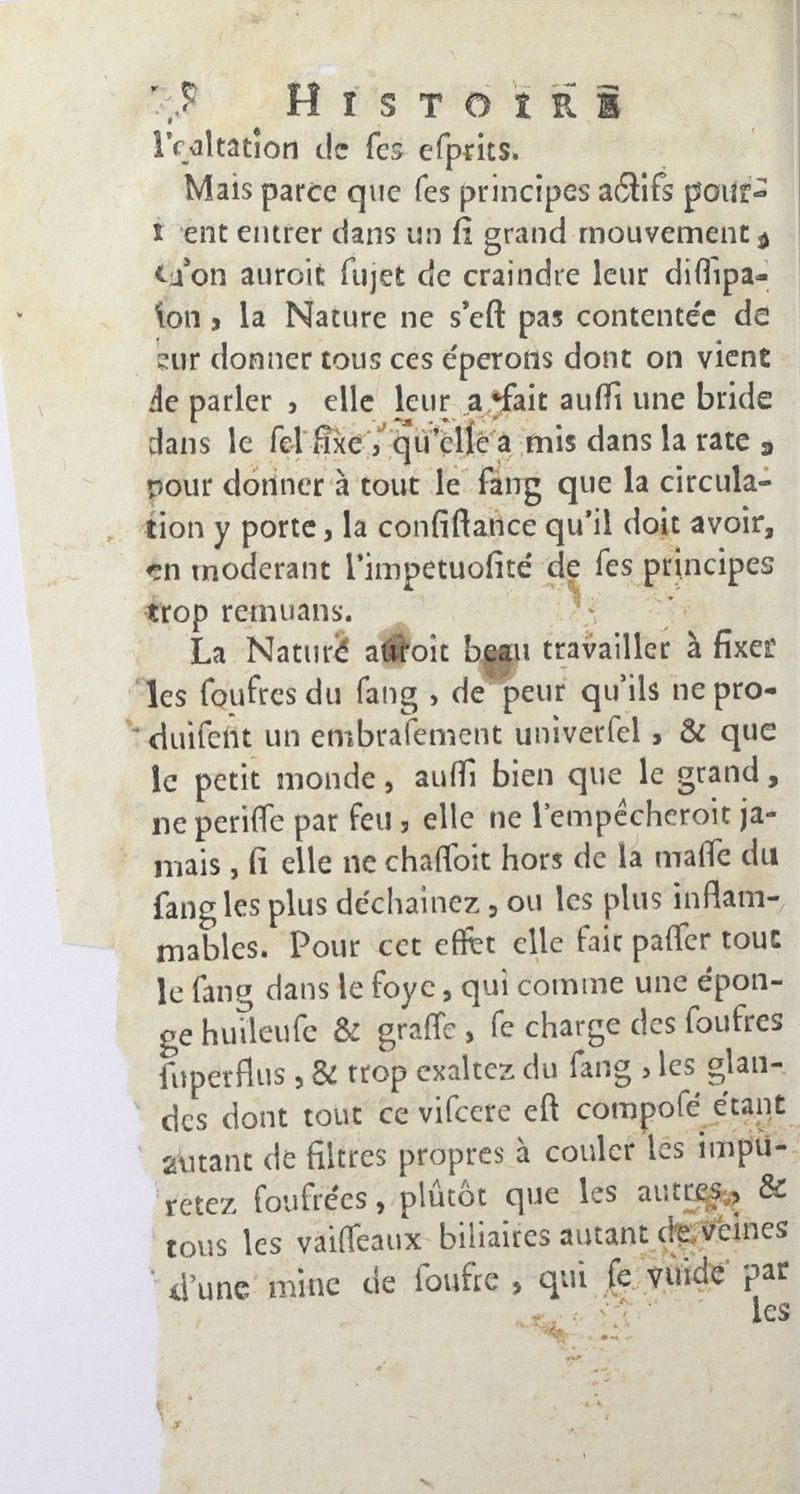 HISTOIRE
l'exaltation de ſes eſprits.
Mais parce que ſes principes actifs pour-
ent entrer dans un ſi grand mouvement,
qu'on auroit ſujet de craindre leur diſſipa-
tion, la Nature ne s'eſt pas contentée de
leur donner tous ces éperons dont on vient
de parler, elle leur a fait auſſi une bride
dans le ſel fixe, qu'elle a mis dans la rate,
pour donner à tout le ſang que la circula-
tion y porte, la conſiſtance qu'il doit avoir,
en moderant l'impetuoſité de ſes principes
trop remuans.
La Nature auroit beau travailler à fixer
les ſoufres du ſang, de peur qu'ils ne pro-
duiſent un embraſement univerſel, & que
le petit monde, auſſi bien que le grand,
ne periſſe par feu, elle ne l'empêcheroit ja-
mais, ſi elle ne chaſſoit hors de la maſſe du
ſang les plus déchainez, ou les plus inflam-
mables. Pour cet effet elle fait paſſer tout
le ſang dans le foye, qui comme une épon-
ge huileuſe & graſſe, ſe charge des ſoufres
ſuperflus, & trop exaltez du ſang, les glan-
des dont tout ce viſcere eſt compoſé étant
autant de filtres propres à couler les impu-
retez ſoufrées, plûtôt que les autres, &
tous les vaiſſeaux biliaires autant de veines
d'une mine de ſoufre, qui ſe vuide par
les